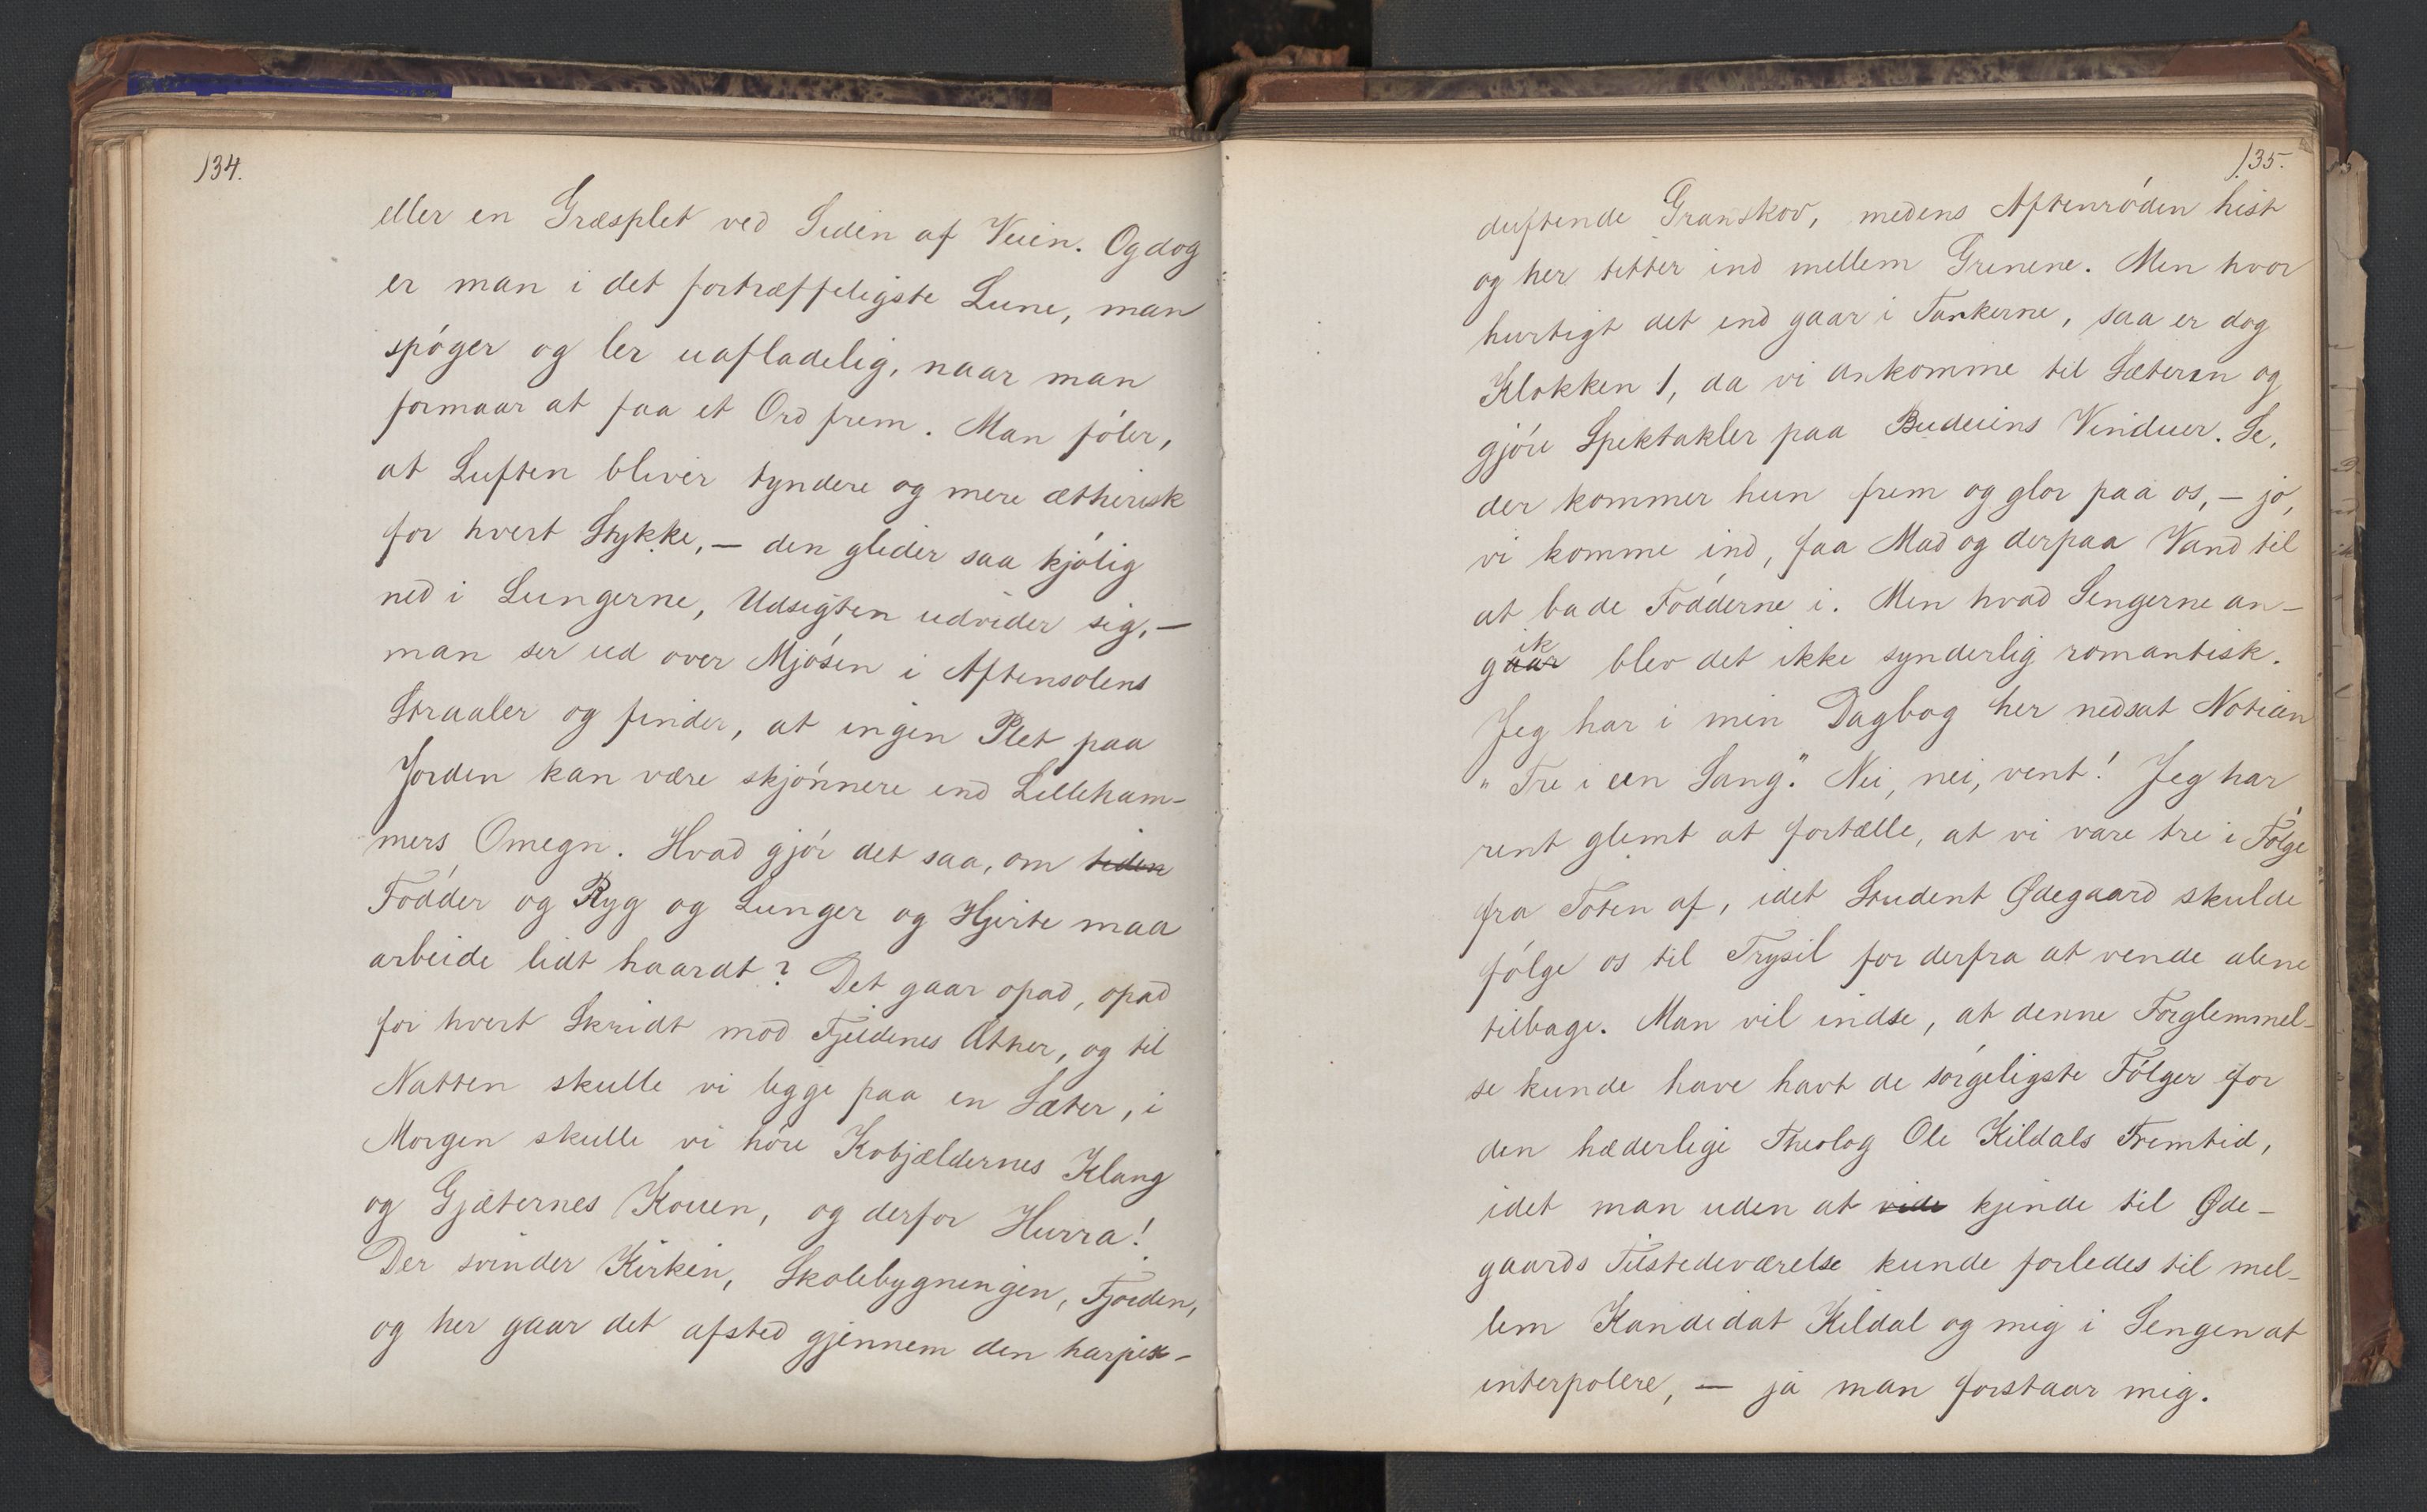 134.
eller en Græsplet ved Siden af Veien. Og dog
er man i det fortræffeligste Lune, man
spóger og ler uafladelig, naar man
formaar at faa et Ord frem. Man fóler,
at Luften bliver tyndere og mere ætherisk
for hvert Stykke, — den glider saa kjólig
ned i Lungerne, Udsigten udvider sig, —
man ser ud over Mjósen i Aftensolens
Straaler og finder, at ingen Plet paa
Jorden kan være skjónnere end Lilleham-
mers Omegn. Hvad gjór det saa, om tiden
Fódder og Ryg og Lunger og Hjerte maa
arbeide lidt haardt? Det gaar opad, opad
for hvert Skridt mod Fjeldenes Æther, og til
Natten skulle vi ligge paa en Sæter, i
Morgen skulle vi hóre Kobjældernes Klang
og Gjæternes Kouen, og derfor Hurra!
Der svinder Kirken, Skolebygningen, Fjorden,
og her gaar det afsted gjennem den harpix-
135.
duftende Granskov, medens Aftenróden hist
og her titter ind mellem Grenene. Men hvor
hurtigt det end gaar i Tankerne, saa er dog
Klokken 1, da vi ankomme til Sæteren og
gjóre Spektakler paa Budeiens Vinduer. Se,
der kommer hun frem og glor paa os, — jo,
vi komme ind, faa Mad og derpaa Vand til
at bade Fódderne i. Men hvad Sengerne an-
ik
gaar blev det ikke synderlig romantisk.
Jeg har i min Dagbog her nedsat Notien
"Tre i een Sang." Nei, nei, vent! Jeg har
rent glemt at fortælle, at vi vare tre i Fólge
fra Toten af, idet Student Ødegaard skulde
fólge os til Trysil for derfra at vende alene
tilbage. Man vil indse, at denne Forglemmel-
se kunde have havt de sórgeligste Fólger for
den hæderlige Theolog Ole Kildals Fremtid,
idet man uden at vide kjende til Øde-
gaards Tilstedeværelse kunde forledes til mel-
lem Kandidat Kildal og mig i Sengen at
interpolere, — ja man forstaar mig.